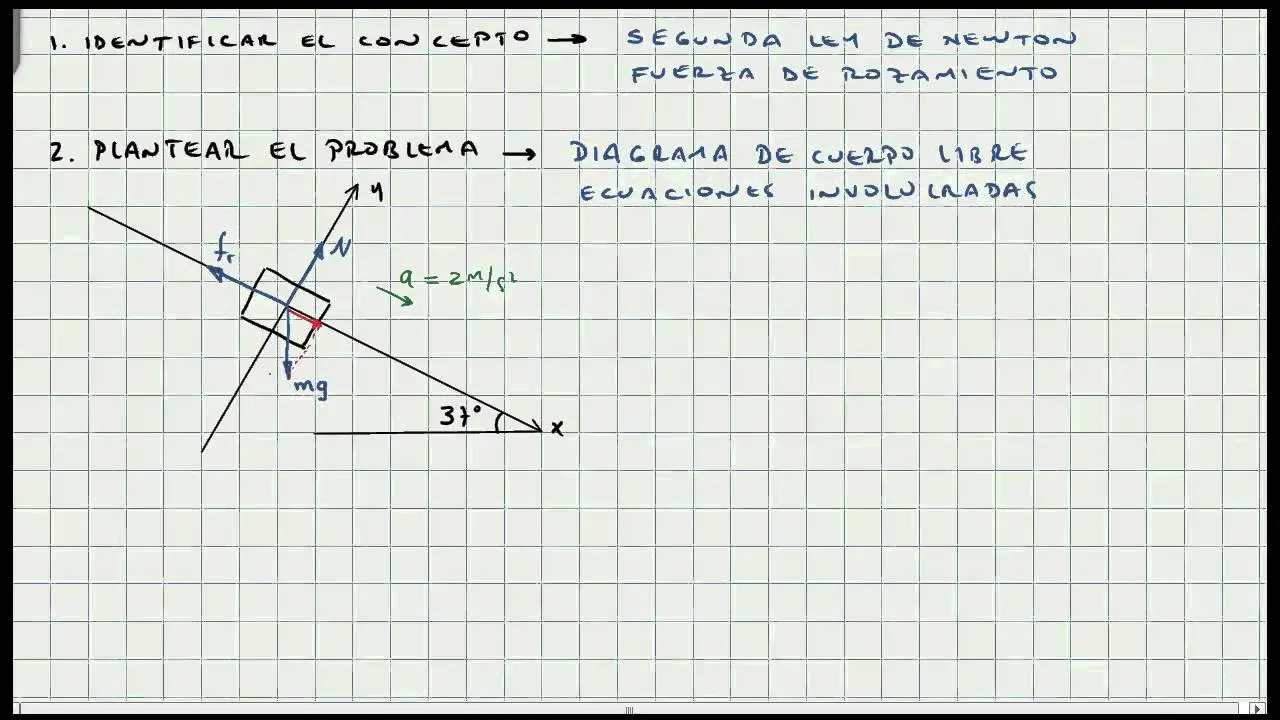 1. IDENTIFICAR EL CONCEPTO → SEGUNDA LEY DE NEWTON
FUERZA DE ROZAMIENTO
2. PLANTEAR EL PROBLEMA → DIAGRAMA DE CUERPO LIBRE
ECUACIONES INVOLUCRADAS
y
fr
N
a = 2m/s²
mg
37°
x